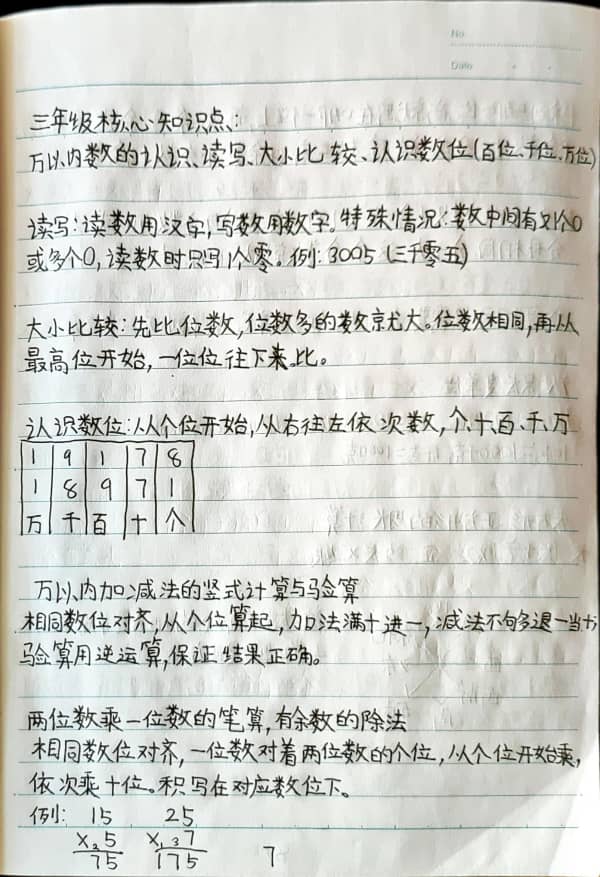 No
Date
三年级核心知识点:
万以内数的认识、读写、大小比较、认识数位(百位、千位、万位)
读写:读数用汉字,写数用数字。特殊情况:数中间有1个0
或多个0,读数时只写1个零。例:3005(三千零五)
大小比较:先比位数,位数多的数就大。位数相同,再从
最高位开始,一位位往下来比。
认识数位:从个位开始,从右往左依次数,个、十、百、千、万
1 9 1 7 8
1 8 9 7 1
万 千 百 十 个
万以内加减法的竖式计算与验算
相同数位对齐,从个位算起,加法满十进一,减法不够多退一当十,
验算用逆运算,保证结果正确。
两位数乘一位数的笔算,有余数的除法
相同数位对齐,一位数对着两位数的个位,从个位开始乘,
依次乘十位。积写在对应数位下。
例: 15 25
×₂5 ×₁₃7
75 175 7